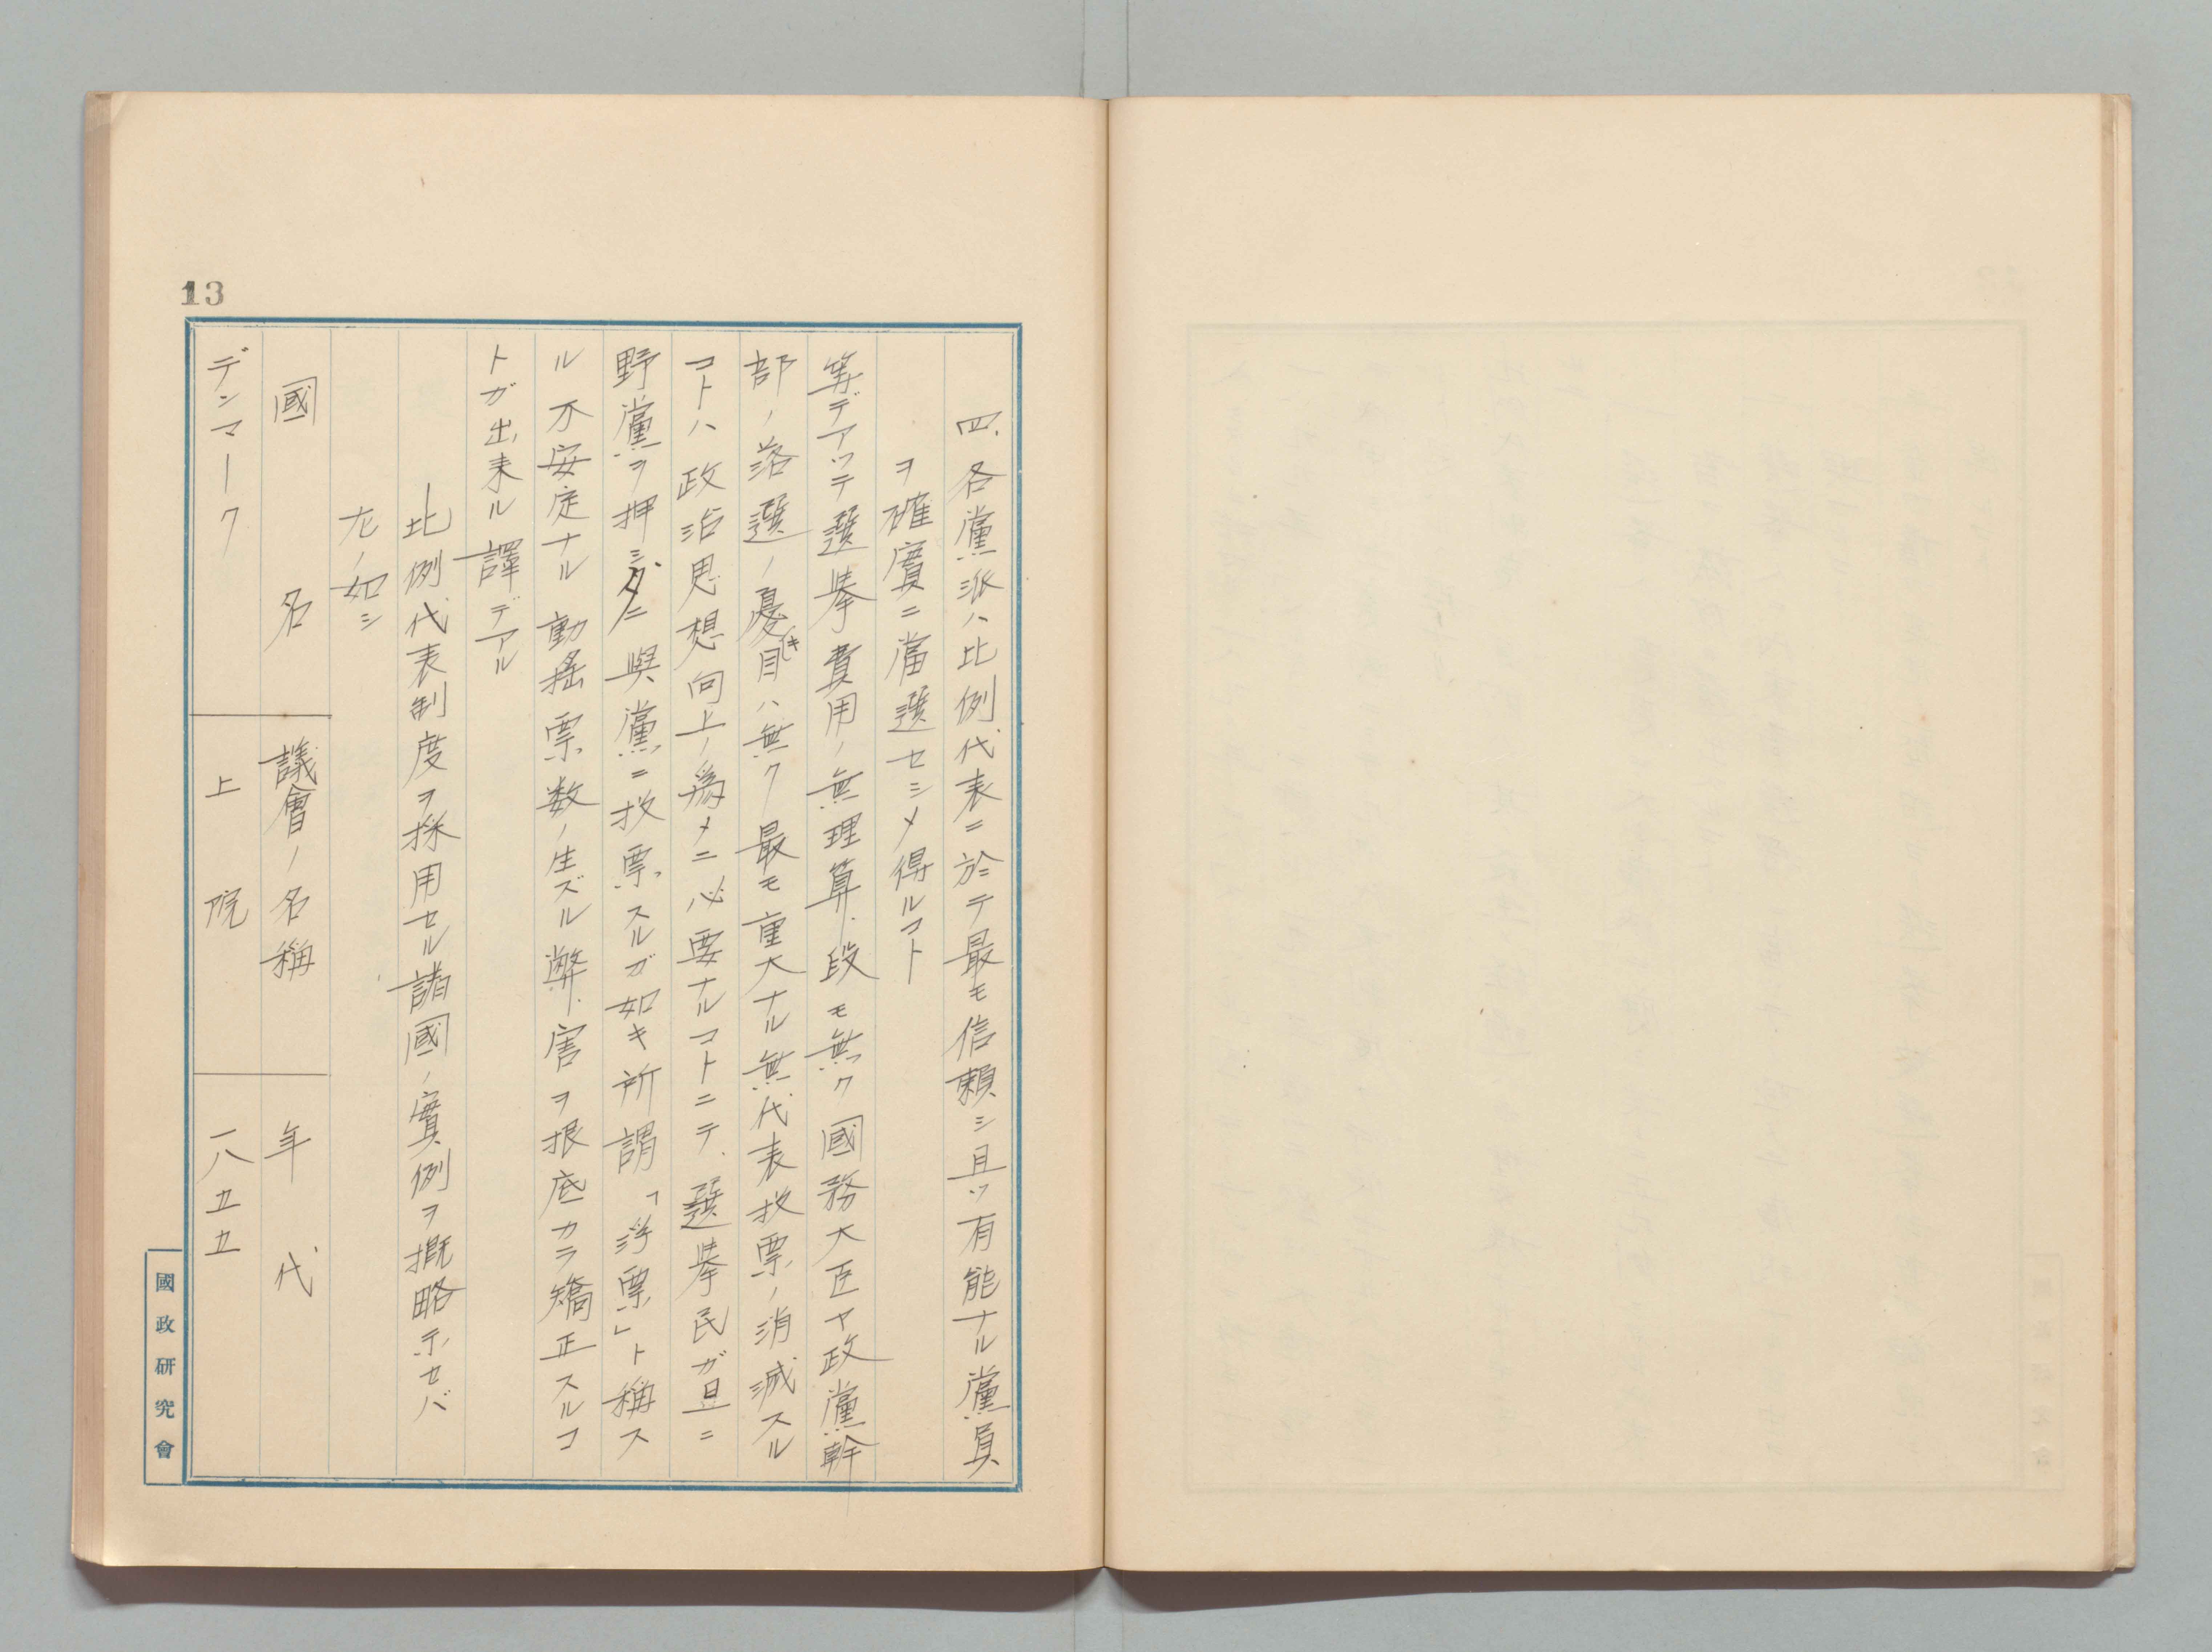 13
四、各黨派ハ比例代表ニ於テ最モ信賴シ且ツ有能ナル黨員
ヲ確實ニ當選セシメ得ルコト
等デアツテ選擧費用ノ無理算段モ無ク國務大臣ヤ政黨幹
部ノ落選ノ憂(キ)目ハ無ク最モ重大ナル無代表投票ノ消滅スル
コトハ政治思想向上ノ爲メニ必要ナルコトニテ、選擧民ガ旦ニ
野黨ヲ押シタニ與黨ニ投票スルガ如キ所謂「浮票」ト稱ス
ル不安定ナル動搖票数ノ生ズル弊害ヲ根底カラ矯正スルコ
トガ出来ル譯デアル
比例代表制度ヲ採用セル諸國ノ實例ヲ概略示セバ
左ノ如シ
國名 議會ノ名稱 年代
デンマーク 上院 一八五五
國政研究會